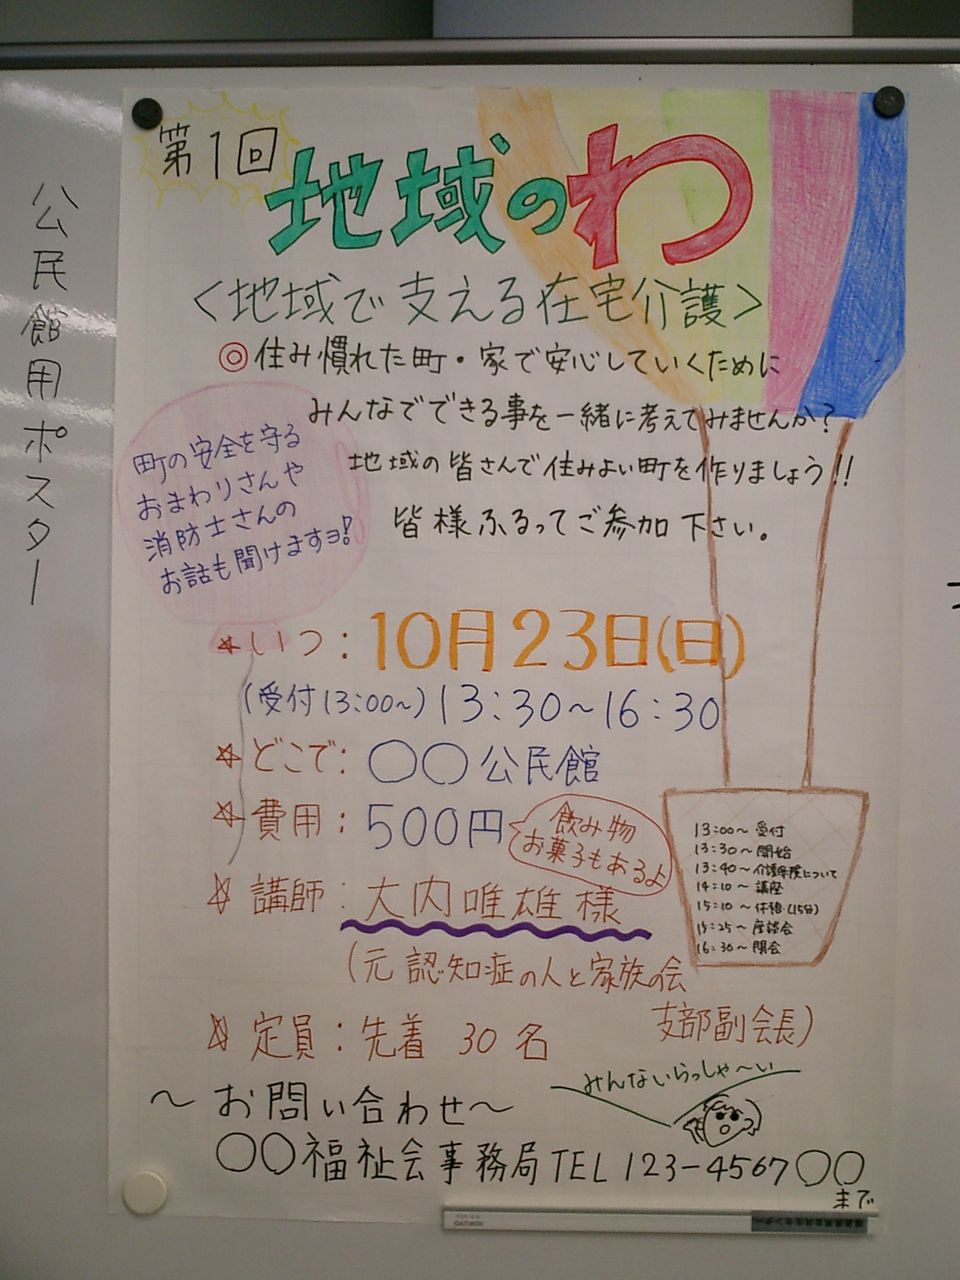 公民館用ポスター
第1回
地域のわ
<地域で支える在宅介護>
◎住み慣れた町・家で安心していくために
みんなでできる事を一緒に考えてみませんか?
地域の皆さんで住みよい町を作りましょう!!
皆様ふるってご参加下さい。
町の安全を守る
おまわりさんや
消防士さんの
お話も聞けますヨ!
☆いつ:10月23日(日)
(受付13:00~)13:30~16:30
☆どこで:○○公民館
☆費用:500円
飲み物
お菓子もあるよ
☆講師:大内唯雄様
(元認知症の人と家族の会
支部副会長)
☆定員:先着 30名
13:00~受付
13:30~開始
13:40~介護保険について
14:10~講座
15:10~休憩(15分)
15:25~座談会
16:30~閉会
みんないらっしゃ~い
~お問い合わせ~
○○福祉会事務局TEL123-4567○○
まで
KOKUYO